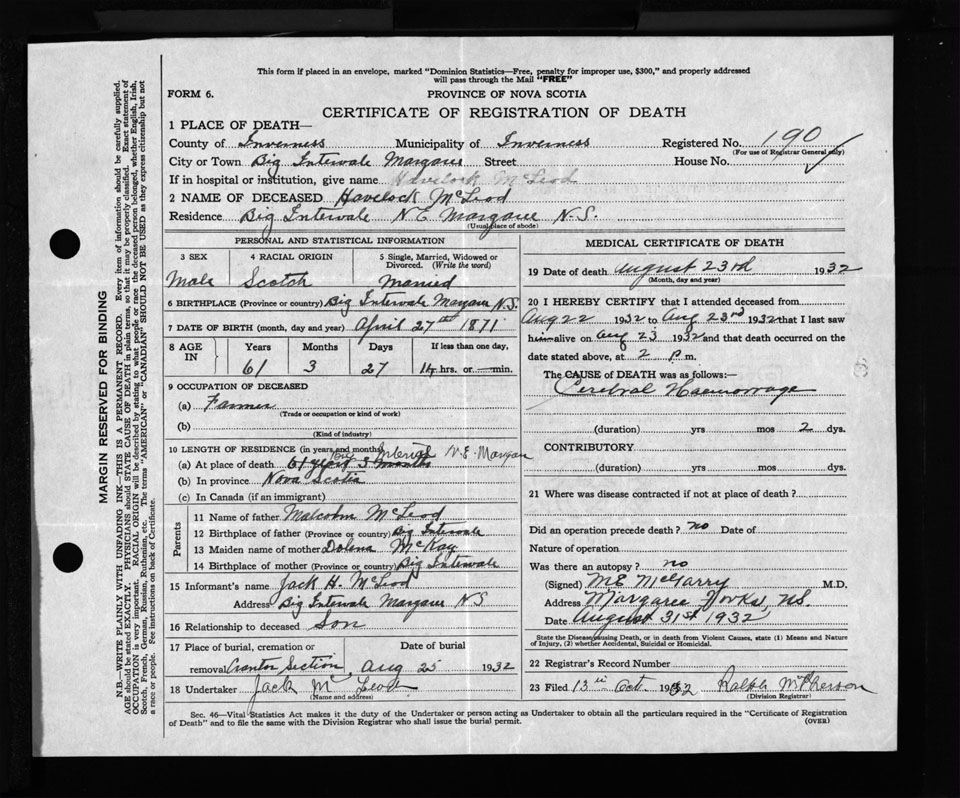 This form if placed in an envelope, marked "Dominion Statistics—Free, penalty for improper use, $300," and properly addressed
will pass through the Mail "FREE"
FORM 6.
PROVINCE OF NOVA SCOTIA
CERTIFICATE OF REGISTRATION OF DEATH
1 PLACE OF DEATH—
County of Inverness Municipality of Inverness Registered No. 190
(For use of Registrar General only)
City or Town Big Intervale Margaree Street House No.
If in hospital or institution, give name Havelock McLeod
2 NAME OF DECEASED Havelock McLeod
Residence Big Intervale N.E. Margaree N.S.
(Usual place of abode)
PERSONAL AND STATISTICAL INFORMATION
3 SEX 4 RACIAL ORIGIN 5 Single, Married, Widowed or
Divorced. (Write the word)
Male Scotch Married
6 BIRTHPLACE (Province or country) Big Intervale Margaree N.S.
7 DATE OF BIRTH (month, day and year) April 27th 1871
8 AGE IN Years Months Days If less than one day,
61 3 27 14 hrs. or — min.
9 OCCUPATION OF DECEASED
(a) Farmer
(Trade or occupation or kind of work)
(b)
(Kind of industry)
10 LENGTH OF RESIDENCE (in years and months) Big Intervale N.E. Margaree
(a) At place of death 61 years 3 months
(b) In province Nova Scotia
(c) In Canada (if an immigrant)
Parents
11 Name of father Malcolm McLeod
12 Birthplace of father (Province or country) Big Intervale
13 Maiden name of mother Dolena McKay
14 Birthplace of mother (Province or country) Big Intervale
15 Informant's name Jack H. McLeod
Address Big Intervale Margaree NS
16 Relationship to deceased Son
17 Place of burial, cremation or Date of burial
removal Section Aug 25 1932
18 Undertaker Jack McLeod
(Name and address)
MEDICAL CERTIFICATE OF DEATH
19 Date of death August 23rd 1932
(Month, day and year)
20 I HEREBY CERTIFY that I attended deceased from
Aug 22 1932 to Aug 23rd 1932 that I last saw
him alive on Aug 23 1932 and that death occurred on the
date stated above, at 2 p.m.
The CAUSE of DEATH was as follows:—
Cerebral Haemorrage
(duration) yrs mos 2 dys.
CONTRIBUTORY
(duration) yrs mos dys.
21 Where was disease contracted if not at place of death?
Did an operation precede death? no Date of
Nature of operation
Was there an autopsy? no
(Signed) M E McGarry M.D.
Address Margaree Forks, NS.
Date August 31st 1932
State the Disease causing Death, or in death from Violent Causes, state (1) Means and Nature
of Injury, (2) whether Accidental, Suicidal or Homicidal.
22 Registrar's Record Number
23 Filed 13th Oct 1932 Ralph McPherson
(Division Registrar)
Sec. 46—Vital Statistics Act makes it the duty of the Undertaker or person acting as Undertaker to obtain all the particulars required in the "Certificate of Registration
of Death" and to file the same with the Division Registrar who shall issue the burial permit.
(OVER)
MARGIN RESERVED FOR BINDING
N.B.—WRITE PLAINLY WITH UNFADING INK—THIS IS A PERMANENT RECORD. Every item of information should be carefully supplied.
AGE should be stated EXACTLY. PHYSICIANS should STATE CAUSE OF DEATH in plain terms, so that it may be properly classified. Exact statement of
OCCUPATION is very important. RACIAL ORIGIN will be described by stating to what people or race the deceased person belonged, whether English, Irish,
Scotch, French, German, Russian, Ruthenian, etc. The terms "AMERICAN" or "CANADIAN" SHOULD NOT BE USED as they express citizenship but not
a race or people. See instructions on back of Certificate.